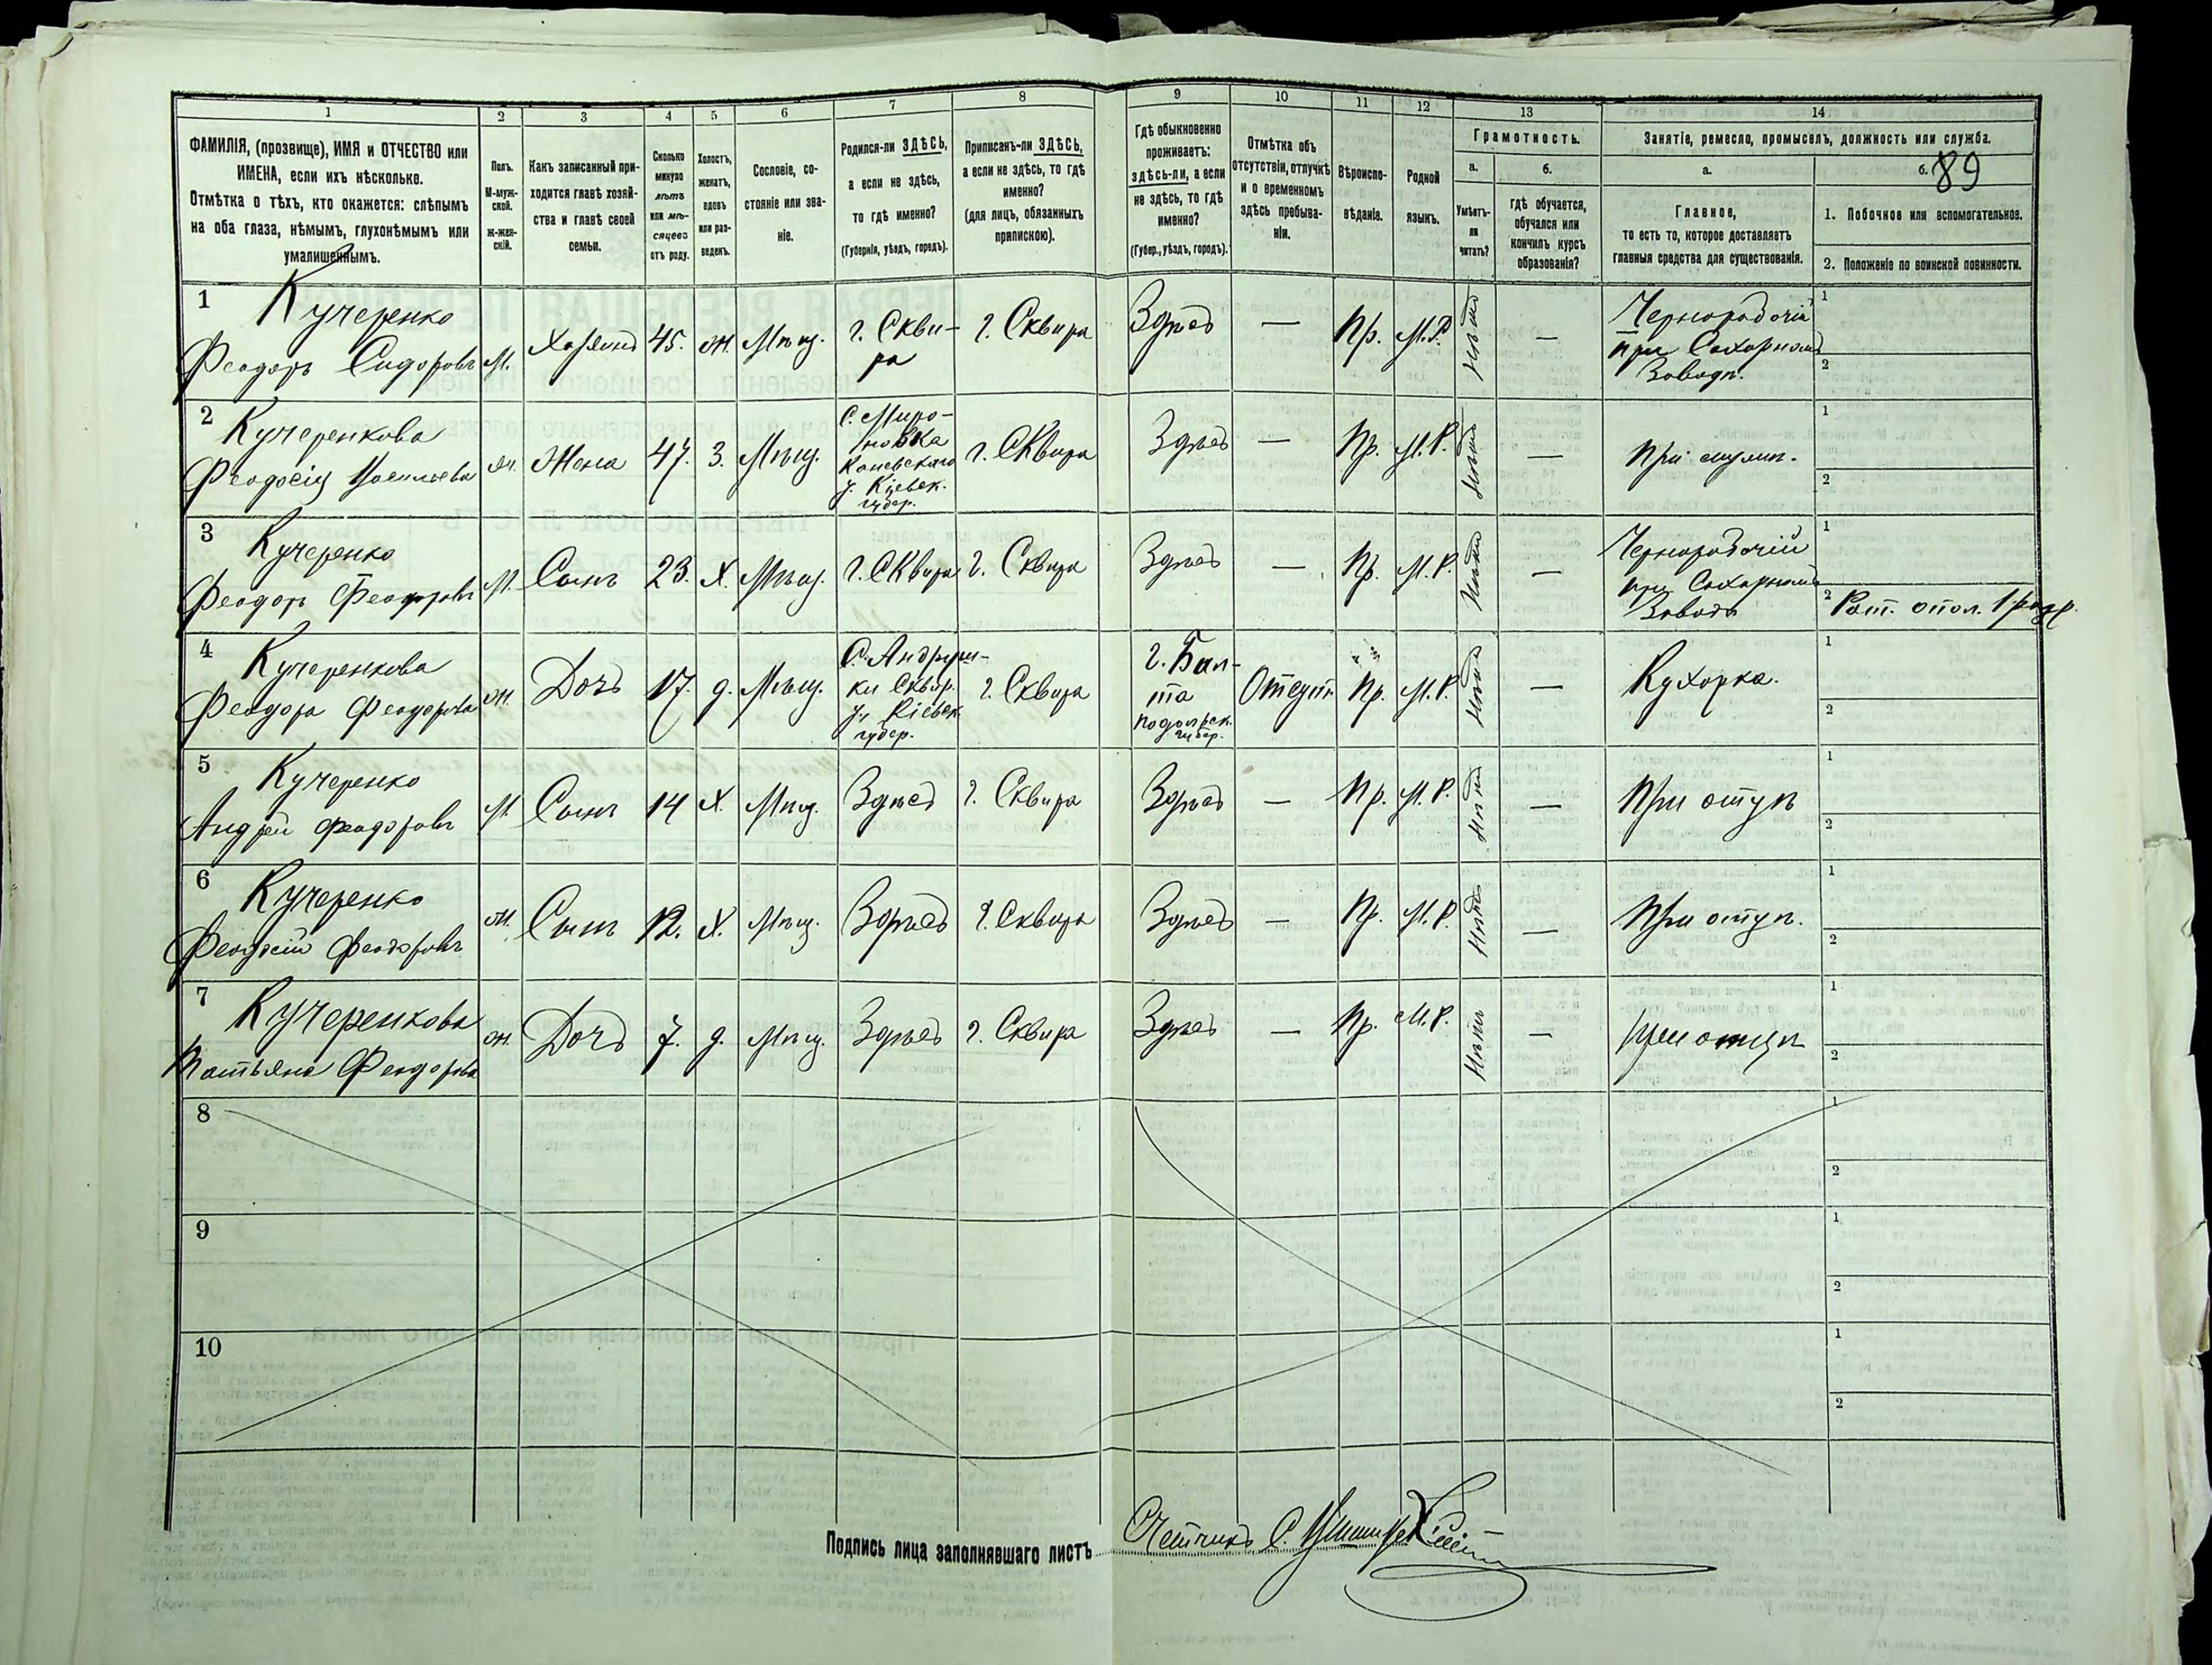 1 2 3 4 5 6 7 8 9 10 11 12 13 14
ФАМИЛІЯ, (прозвище), ИМЯ и ОТЧЕСТВО или
ИМЕНА, если ихъ нѣсколько.
Отмѣтка о тѣхъ, кто окажется: слѣпымъ
на оба глаза, нѣмымъ, глухонѣмымъ или
умалишеннымъ.
Полъ.
М-муж-
ской.
ж-жен-
скій.
Какъ записанный при-
ходится главѣ хозяй-
ства и главѣ своей
семьи.
Сколько
минуло
лѣтъ
или мѣ-
сяцевъ
отъ роду.
Холостъ,
женатъ,
вдовъ
или раз-
веденъ.
Сословіе, со-
стояніе или зва-
ніе.
Родился-ли ЗДѢСЬ,
а если не здѣсь,
то гдѣ именно?
(Губернія, уѣздъ, городъ).
Приписанъ-ли ЗДѢСЬ,
а если не здѣсь, то гдѣ
именно?
(для лицъ, обязанныхъ
припискою).
Гдѣ обыкновенно
проживаетъ:
здѣсь-ли, а если
не здѣсь, то гдѣ
именно?
(Губер., уѣздъ, городъ).
Отмѣтка объ
отсутствіи, отлучкѣ
и о временномъ
здѣсь пребыва-
ніи.
Вѣроиспо-
вѣданіе.
Родной
языкъ.
Грамотность.
а.
Умѣетъ-
ли
читать?
б.
гдѣ обучается,
обучался или
кончилъ курсъ
образованія?
Занятіе, ремесло, промыселъ, должность или служба.
а.
Главное,
то есть то, которое доставляетъ
главныя средства для существованія.
б. 89
1. Побочное или вспомогательное.
2. Положеніе по воинской повинности.
1 Кучеренко
Феодоръ Сидоровъ
М. Хозяинъ 45. ж. Мѣщ.
г. Скви-
ра
г. Сквира Здѣсь — Пр. М.Р. Нѣтъ —
Чернорабочій
при Сахарномъ
Заводѣ.
1
2
2 Кучеренкова
Феодосія Васильева
ж. Жена 47. З. Мѣщ.
С. Миро-
новка
Каневскаго
у. Кіевск.
губер.
г. Сквира Здѣсь — Пр. М.Р. Нѣтъ —
При мужѣ.
1
2
3 Кучеренко
Феодоръ Феодоровъ
М. Сынъ 23. Х. Мѣщ. г. Сквира г. Сквира Здѣсь — Пр. М.Р. Нѣтъ —
Чернорабочій
при Сахарномъ
Заводѣ
1
2 Рат. опол. 1 разр.
4 Кучеренкова
Феодора Феодорова
ж. Дочь 17. д. Мѣщ.
С. Андруш-
ки Сквир.
у. Кіевск.
губер.
г. Сквира
г. Бал-
та
Подольск.
губер.
Отсут. Пр. М.Р. Нѣтъ —
Кухарка.
1
2
5 Кучеренко
Андрей Феодоровъ
М. Сынъ 14 Х. Мѣщ. Здѣсь г. Сквира Здѣсь — Пр. М.Р. Нѣтъ —
При отцѣ
1
2
6 Кучеренко
Феодосій Феодоровъ
М. Сынъ 12. Х. Мѣщ. Здѣсь г. Сквира Здѣсь — Пр. М.Р. Нѣтъ —
При отцѣ.
1
2
7 Кучеренкова
Татьяна Феодорова
ж. Дочь 7. д. Мѣщ. Здѣсь г. Сквира Здѣсь — Пр. М.Р. Нѣтъ —
При отцѣ
1
2
8
1
2
9
1
2
10
1
2
Подпись лица заполнявшаго листъ Счетчикъ С.